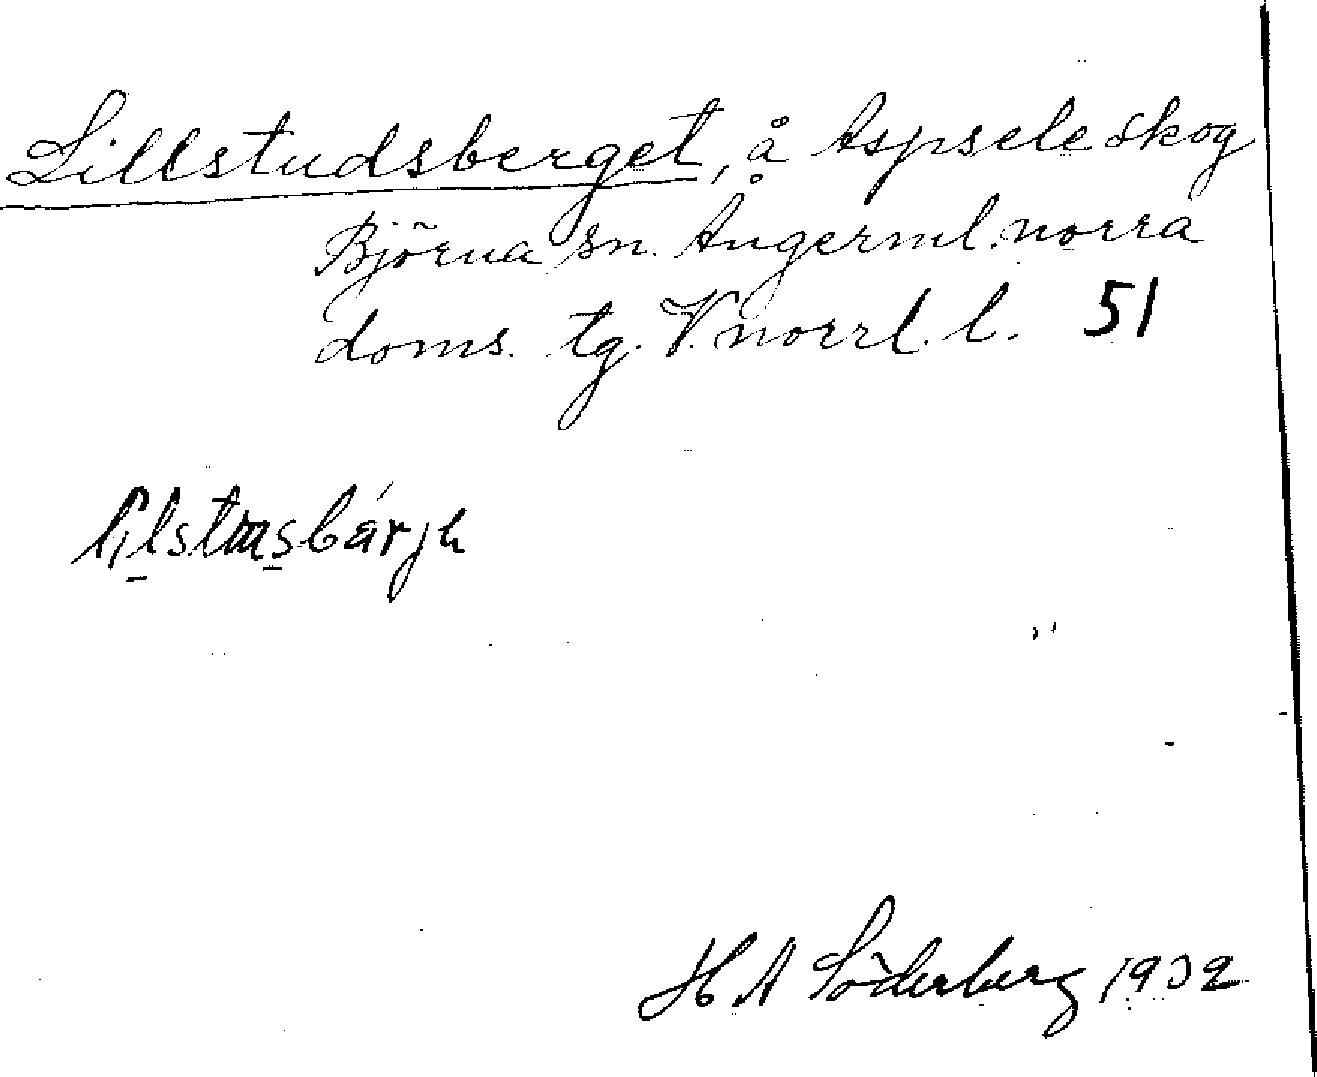 Lillstudsberget, å Aspsele skog
Björna sn. Ångerml. norra
doms. tg. V. norrl. l. 51
H A Söderberg 1932